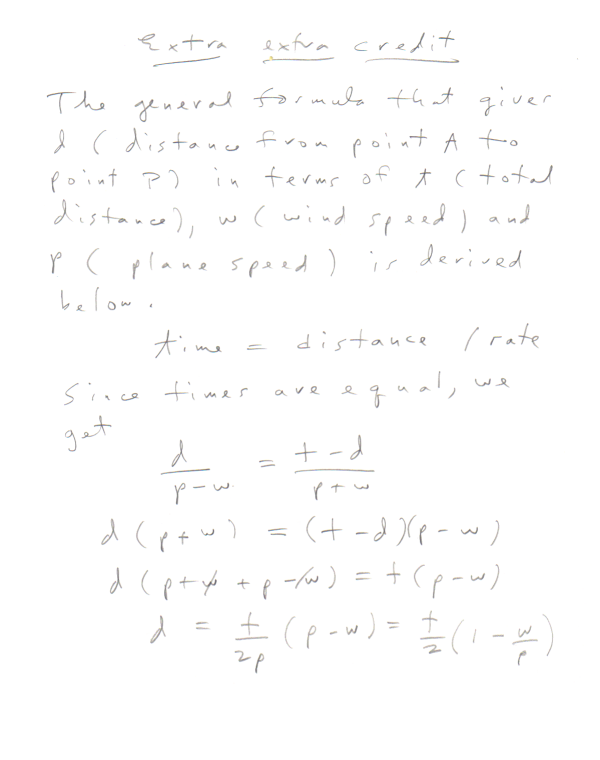 Extra extra credit
The general formula that gives
d (distance from point A to
point P) in terms of t (total
distance), w (wind speed) and
p (plane speed) is derived
below.
time = distance / rate
Since times are equal, we
get
d/(p-w) = (t-d)/(p+w)
d (p+w) = (t-d)(p-w)
d (p+w+p-w) = t(p-w)
d = t/2p (p-w) = t/2 (1 - w/p)